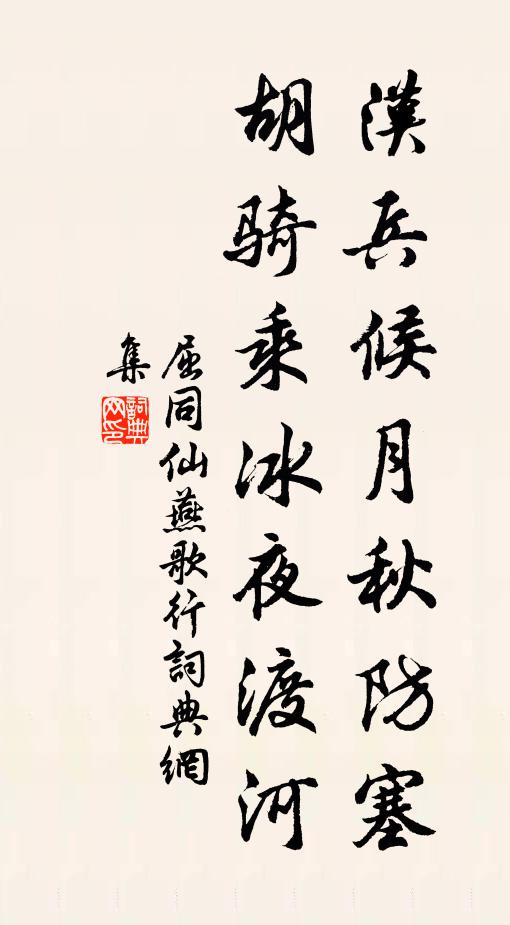 漢兵候月秋防塞
胡騎乘冰夜渡河
屈同仙燕歌行詞典網
集
詞典
网印